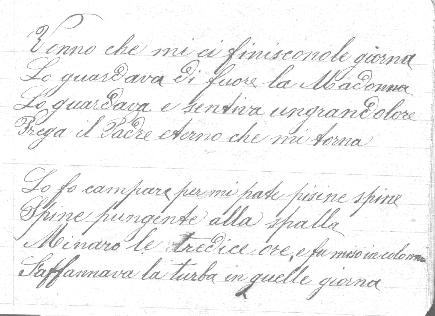 Vonno che mi ci finisconole giorna
Lo guardava di fuore la Madonna
Lo guardava e sentiva ungrandolore
Prega il Padre eterno che mi torna
Lo fo campare per mi pate pisine spine
Spine pungente alla spalla
Minaro le tredice ore, e fu miso in colonna
S'affannava la turba in quelle giorna